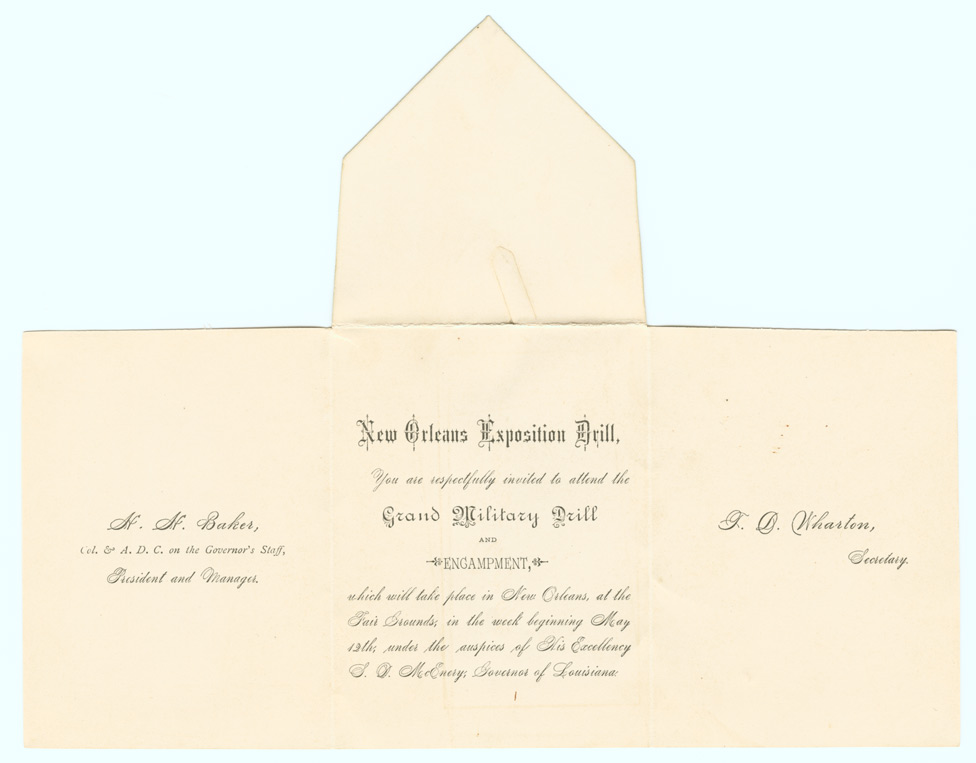 New Orleans Exposition Drill,
You are respectfully invited to attend the
Grand Military Drill
AND
ENCAMPMENT,
which will take place in New Orleans, at the
Fair Grounds, in the week beginning May
12th, under the auspices of His Excellency
S. D. McEnery, Governor of Louisiana.
N. N. Baker,
Col. & A. D. C. on the Governor's Staff,
President and Manager.
T. D. Wharton,
Secretary.